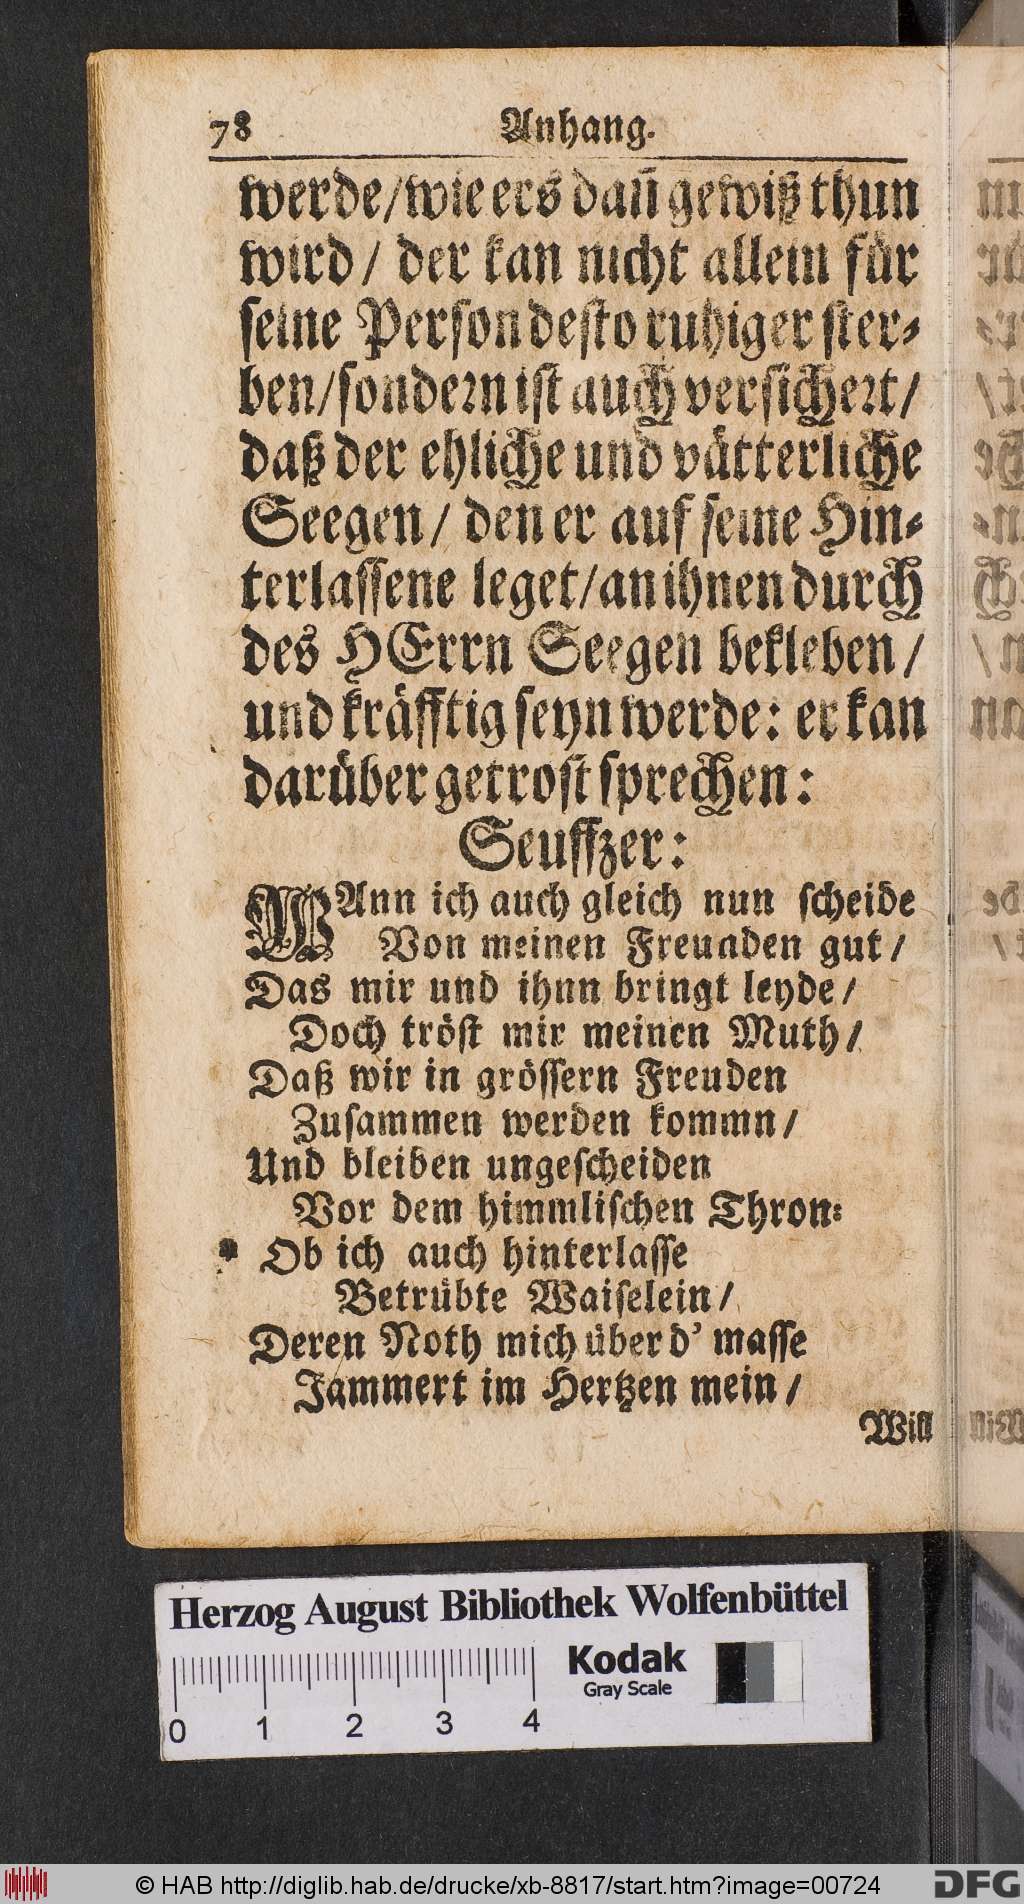 78 Anhang.
werde/wie ers dañ gewiß thun
wird/ der kan nicht allein für
seine Person desto ruhiger ster-
ben/sondern ist auch versichert/
daß der ehliche und vätterliche
Seegen/ den er auf seine Hin-
terlassene leget/an ihnen durch
des HErrn Seegen bekleben/
und kräfftig seyn werde: er kan
darüber getrost sprechen:
Seuffzer:
WAnn ich auch gleich nun scheide
Von meinen Freunden gut/
Das mir und ihnn bringt leyde/
Doch tröst mir meinen Muth/
Daß wir in grössern Freuden
Zusammen werden kommn/
Und bleiben ungescheiden
Vor dem himmlischen Thron:
Ob ich auch hinterlasse
Betrübte Waiselein/
Deren Noth mich über d' masse
Jammert im Hertzen mein/
Will
Herzog August Bibliothek Wolfenbüttel
Kodak
Gray Scale
0 1 2 3 4
© HAB http://diglib.hab.de/drucke/xb-8817/start.htm?image=00724
DFG